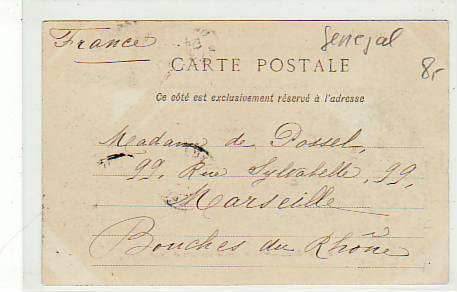 France
Senegal
8,-
CARTE POSTALE
Ce côté est exclusivement réservé à l'adresse
Madame de Possel,
99, Rue Sylvabelle, 99,
Marseille
Bouches du Rhône